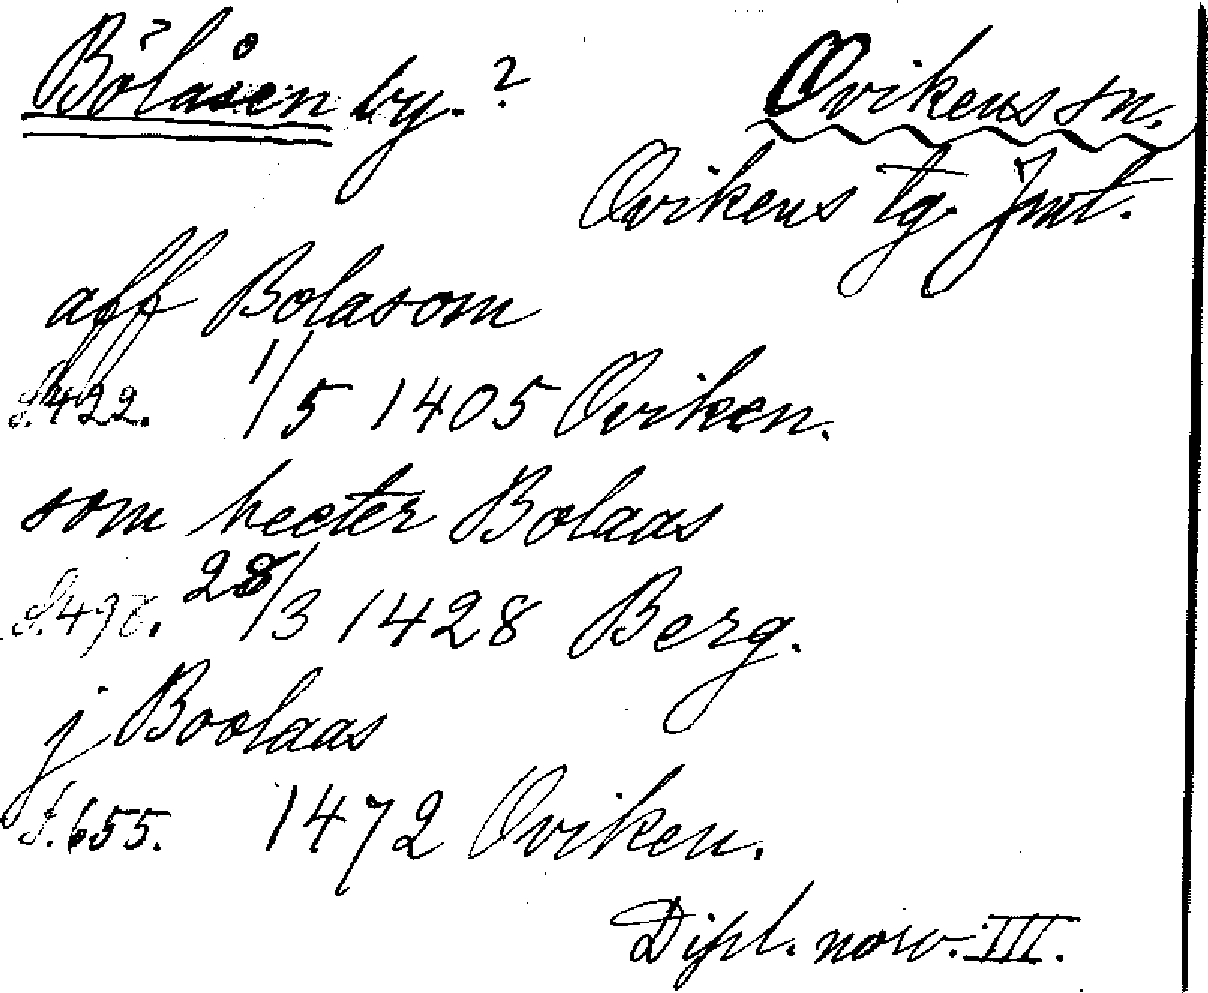 Bölåsen by. ?
Ovikens sn.
Ovikens tg. Jmt.
aff Bolasom
S. 422. 1/5 1405 Oviken.
som heeter Bolaas
S. 498. 28/3 1428 Berg.
j Boolaas
S. 655. 1472 Oviken.
Dipl. norv. III.